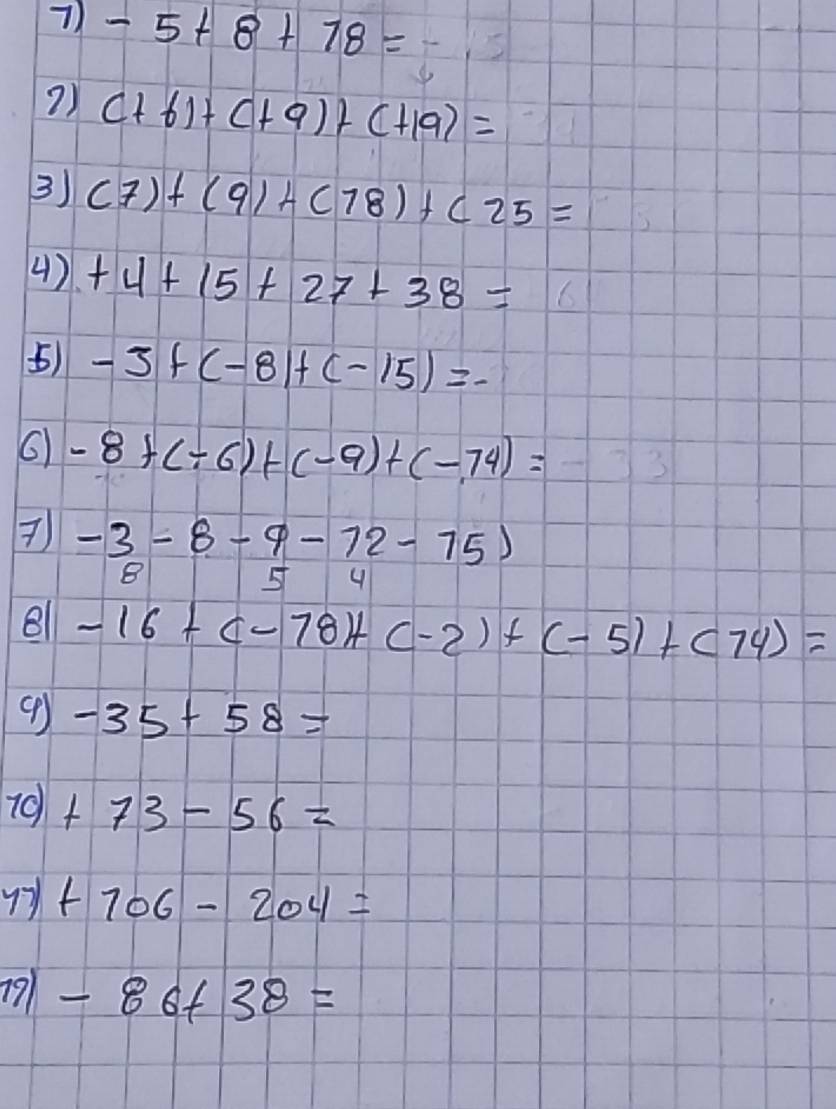 1) - 5 + 8 + 18 =
2) (+ 6) + (+ 9) + (+19) =
3) (7) + (9) + (18) + ( 25 =
4) + 4 + 15 + 27 + 38 =
5) - 3 + (- 8) + (- 15) = -
6) - 8 + (- 6) + (- 9) + (- 14) = - 33
7) - 3 - 8 - 9 - 12 - 15)
8 5 4
8) - 16 + (- 18) + (- 2) + (- 5) + (14) =
9) - 35 + 58 =
10) + 73 - 56 =
11) + 106 - 204 =
12) - 86 + 38 =